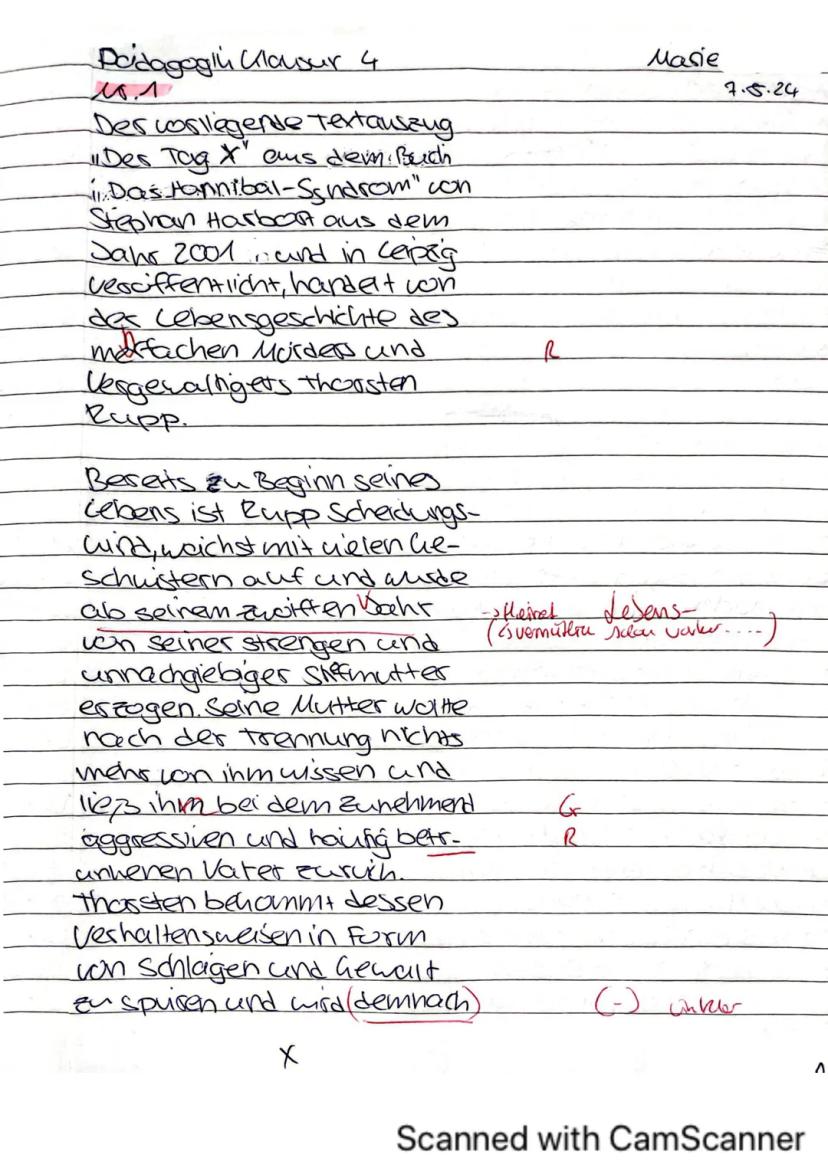 Pädagogik Klausur 4 Marie
Nr. 1 7.5.24
Der vorliegende Textauszug
„Der Tag X" aus dem Buch
„Das Hannibal-Syndrom" von
Stephan Harbort aus dem
Jahr 2001 und in Leipzig
veröffentlicht, handelt von
der Lebensgeschichte des
mehrfachen Mörders und R
Vergewaltigers Thorsten
Rupp.
Bereits zu Beginn seines
Lebens ist Rupp Scheidungs-
kind, wächst mit vielen Ge-
schwistern auf und wurde
ab seinem zwölften Jahr Lebens-
von seiner strengen und
unnachgiebiger Stiefmutter
erzogen. Seine Mutter wollte
nach der Trennung nichts
mehr von ihm wissen und
ließ ihn bei dem zunehmend G
aggressiven und häufig betr- R
unkenen Vater zurück.
Thorsten bekommt dessen
Verhaltensweisen in Form
von Schlägen und Gewalt
zu spüren und wird (demnach) (-) unklar
X 1
Scanned with CamScanner